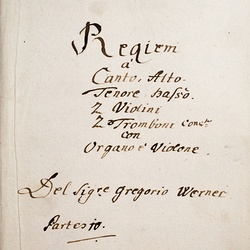 Reqiem
à
Canto, Alto.
Tenore Basso.
2 Violini
2 Tromboni Conc:ti
con
Organo è Violone.
Del Sigre Gregorio Werner
Partes